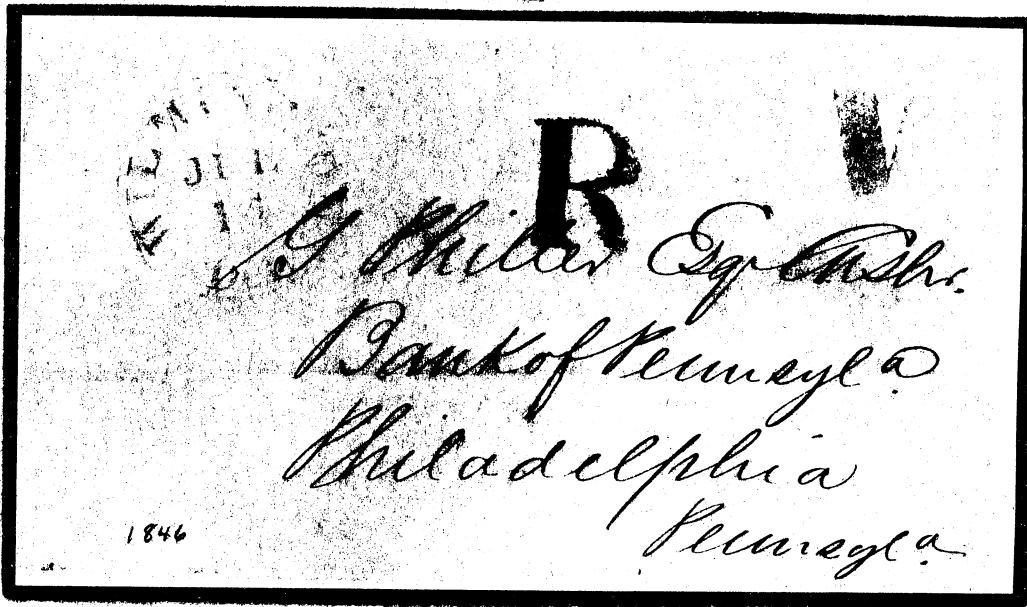 R
JUL
G Philler Esqr Cashr.
Bank of Pennsyla
Philadelphia
Pennsyla
1846